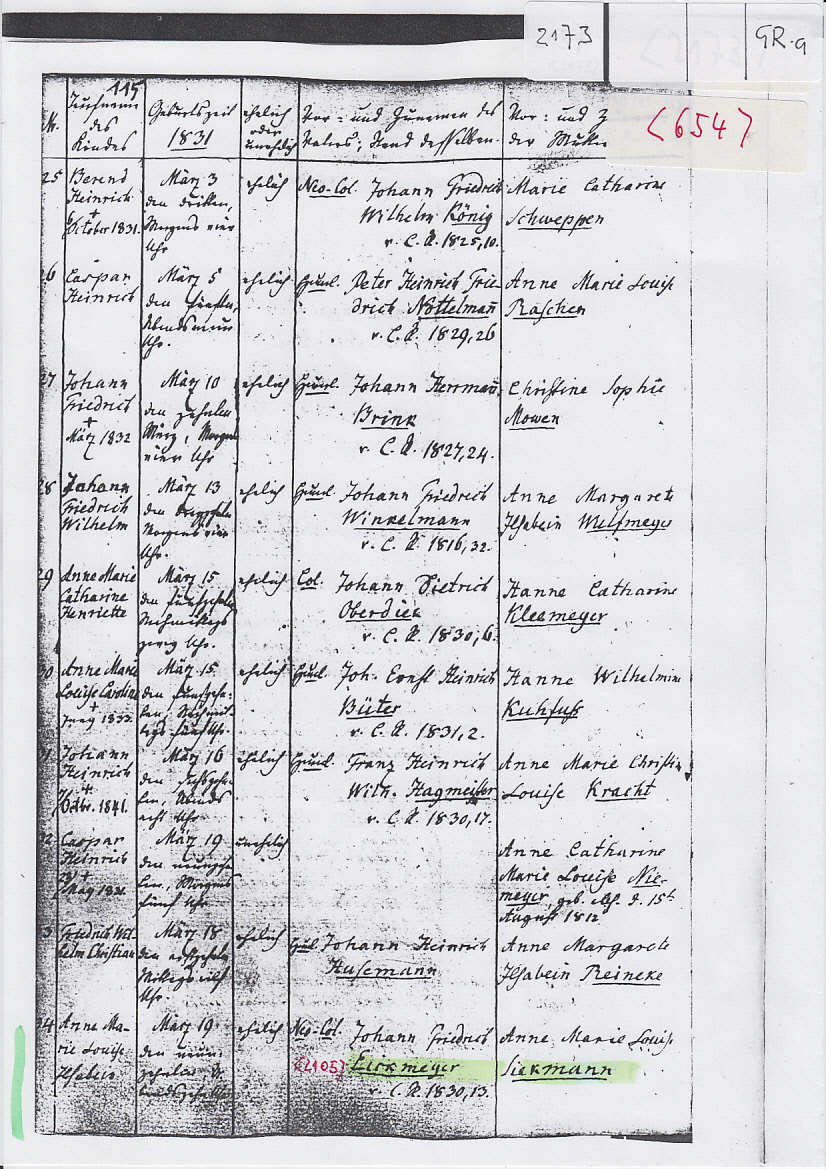 2173
GR.9
<654>
115
Nr.
Taufname
des
Kindes
Geburtszeit
1831
ehelich
oder
unehelich
Vor- und Zunamen des
Vaters; Stand desselben.
Vor- und Z
der Mutter
25
Berend
Heinrich
+
October 1831.
März 3
den dritten,
Morgens vier
Uhr
ehelich
Neo-Col. Johann Friedrich
Wilhelm König
v. C. A. 1825, 10.
Marie Catharine
Schweppen
26
Caspar
Heinrich
März 5
den fünften,
Abends neun
Uhr.
ehelich
Heuerl. Peter Heinrich Frie
drich Nottelmann
v. C. A. 1829, 26
Anne Marie Louise
Raschen
27
Johann
Friedrich
+
März 1832
März 10
den zehnten
März, Morgens
vier Uhr
ehelich
Heuerl. Johann Herrmann
Brink
v. C. A. 1827, 24.
Christine Sophie
Mowen
28
Johann
Friedrich
Wilhelm
März 13
den dreyzehn
Morgens vier
Uhr.
ehelich
Heuerl. Johann Friedrich
Winkelmann
v. C. A. 1816, 32.
Anne Margarete
Ilsabein Welfmeyer
29
Anne Marie
Catharine
Henriette
März 15
den funfzehnten
Nachmittags
zwey Uhr.
ehelich
Col. Johann Dietrich
Oberdiek
v. C. A. 1830, 6.
Hanne Catharine
Kleemeyer
30
Anne Marie
Louise Caroline
+
März 15
den funfzehn-
ten, Nachmit-
tags fünf Uhr.
ehelich
Heuerl. Joh. Ernst Heinrich
Büter
v. C. A. 1831, 2.
Hanne Wilhelmine
Kuhfuß
31
Johann
Heinrich
+
1841.
März 16
den sechszehn-
ten, Abends
acht Uhr
ehelich
Heuerl. Franz Heinrich
Wilh. Hagmeister
v. C. A. 1830, 17.
Anne Marie Christin
Louise Kracht
32
Caspar
Heinrich
+
May
März 19
den neunzehn-
ten, Morgens
fünf Uhr
unehelich
Anne Catharine
Marie Louise Nie-
meyer, geb. d. 15t
August 1812
33
Friedrich Wil-
helm Christian
März 18
den achtzehn
Mittags elf
Uhr.
ehelich
Heuerl. Johann Heinrich
Husemann
Anne Margarete
Ilsabein Reineke
34
Anne Ma-
rie Louise
Ilsabein
März 19
den neun-
zehnten
ehelich
Neo-Col. Johann Friedrich
<2105> Eickmeyer
v. C. A. 1830, 13.
Anne Marie Louise
Siekmann